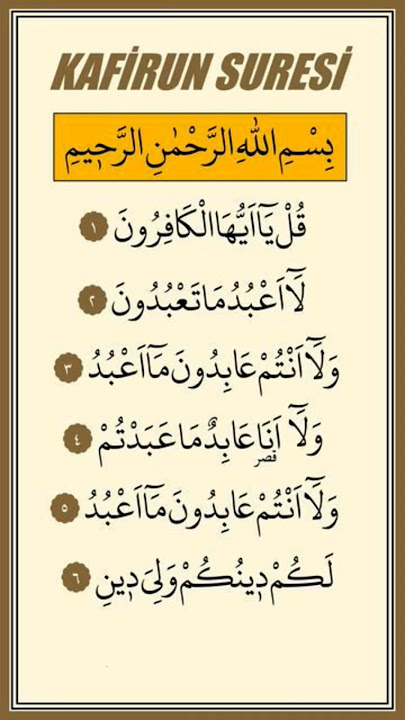 KAFİRUN SURESİ
بِسْمِ اللّٰهِ الرَّحْمٰنِ الرَّحٖيمِ
قُلْ يَٓا اَيُّهَا الْكَافِرُونَ ١
لَٓا اَعْبُدُ مَا تَعْبُدُونَ ٢
وَلَٓا اَنْتُمْ عَابِدُونَ مَٓا اَعْبُدُ ٣
وَلَٓا اَنَا عَابِدٌ مَا عَبَدْتُمْ ٤
قصر
وَلَٓا اَنْتُمْ عَابِدُونَ مَٓا اَعْبُدُ ٥
لَكُمْ دٖينُكُمْ وَلِيَ دٖينِ ٦